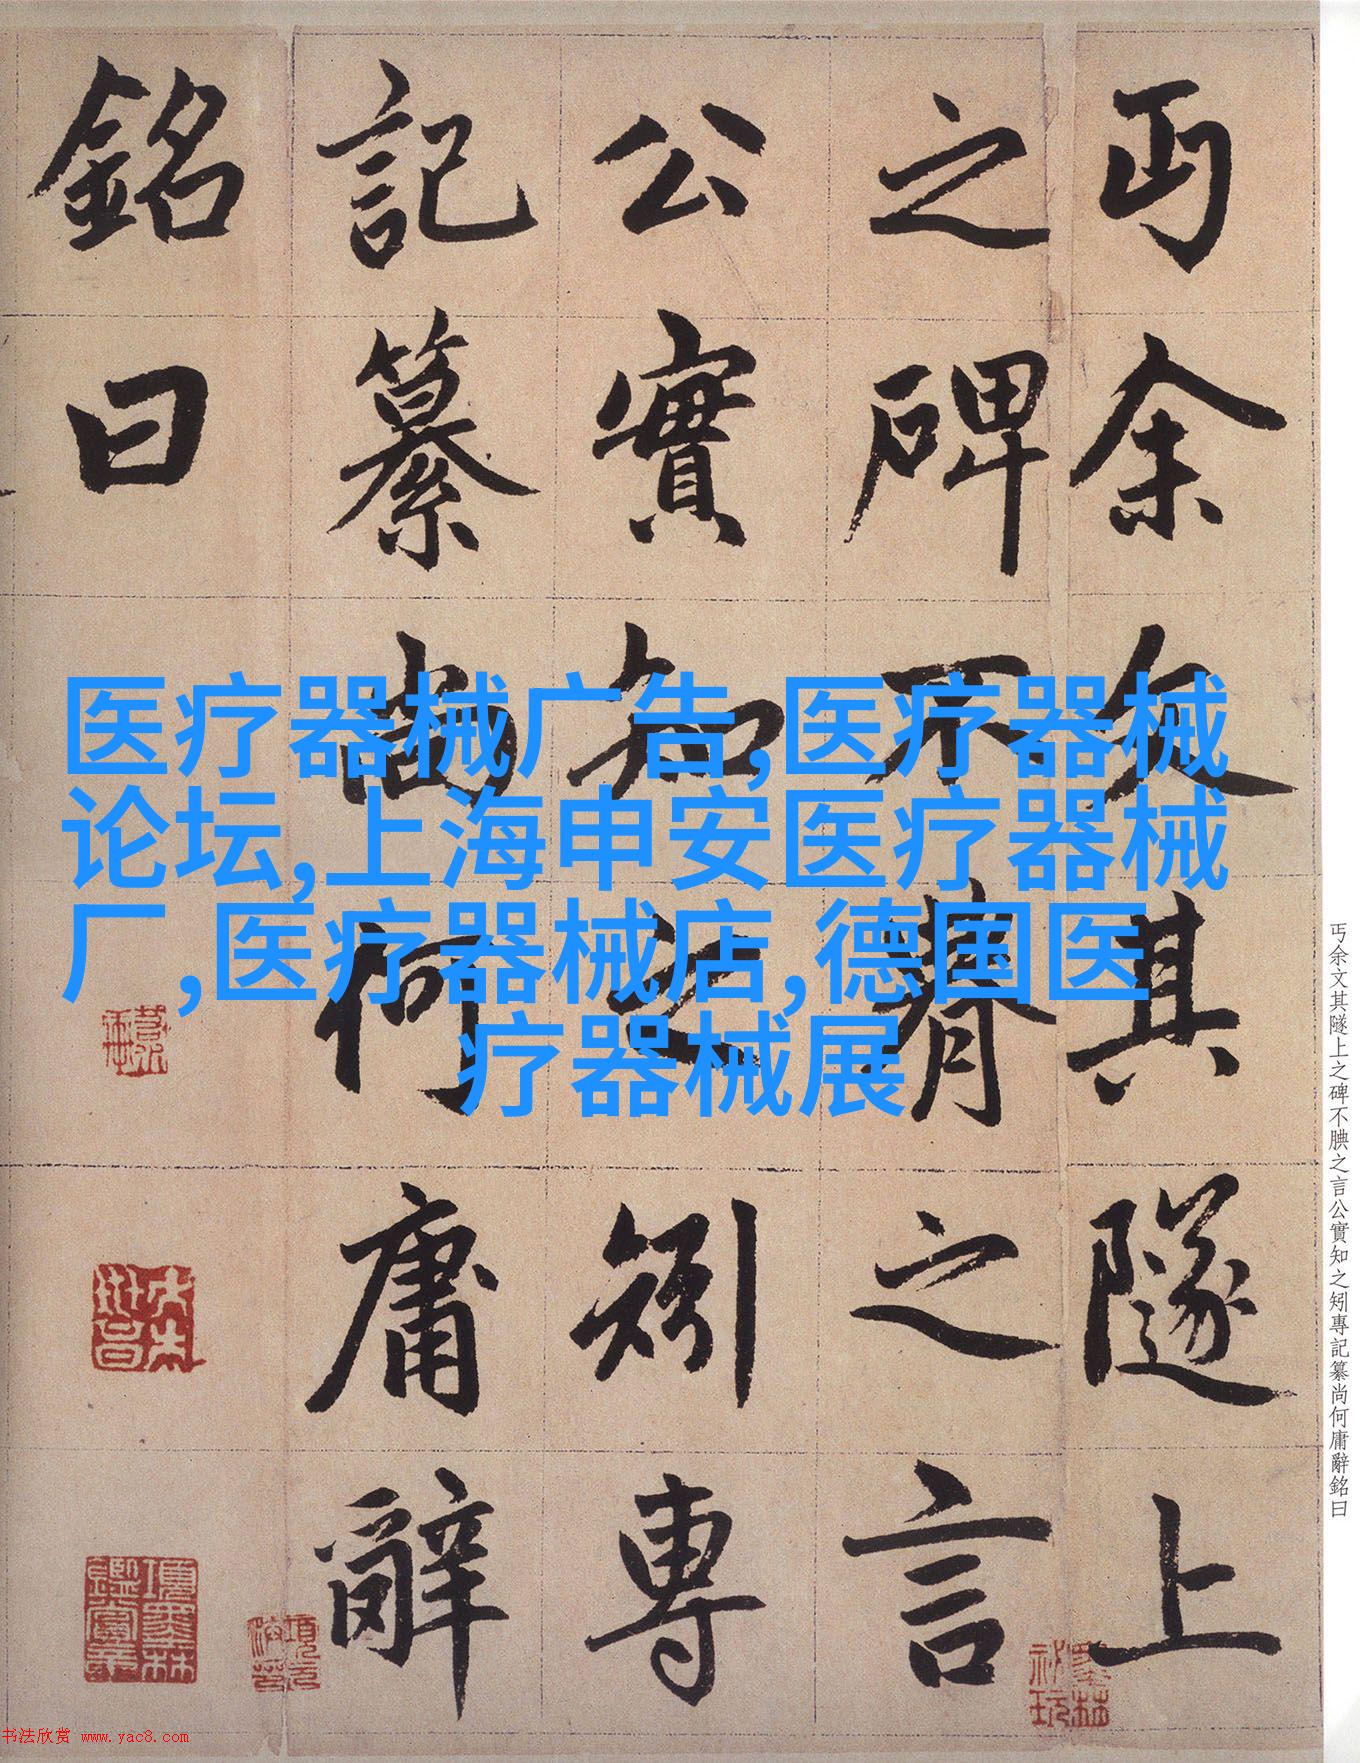 丏余文其隧上
之碑不腆之言
公實知之矧專
記纂尚何庸辭
銘曰
医疗器械广告,医疗器械
论坛,上海申安医疗器械
厂,医疗器械店,德国医
疗器械展
丏余文其隧上之碑不腆之言公實知之矧專記纂尚何庸辭銘曰
項墨林鑑賞章
书法欣赏 www.yac8.com